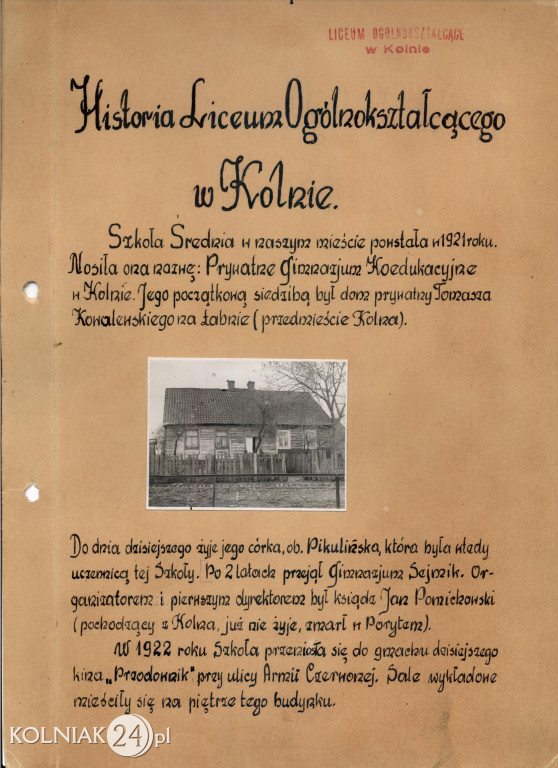 LICEUM OGÓLNOKSZTAŁCĄCE
w Kolnie
Historia Liceum Ogólnokształcącego
w Kolnie.
Szkoła Średnia w naszym mieście powstała w 1921 roku.
Nosiła ona nazwę: Prywatne Gimnazjum Koedukacyjne
w Kolnie. Jego początkową siedzibą był dom prywatny Tomasza
Kowalewskiego na Łabnie (przedmieście Kolna).
Do dnia dzisiejszego żyje jego córka, ob. Pikulińska, która była wtedy
uczennicą tej Szkoły. Po 2 latach przejął Gimnazjum Sejmik. Or-
ganizatorem i pierwszym dyrektorem był ksiądz Jan Pomichowski
(pochodzący z Kolna, już nie żyje, zmarł w Porytem).
W 1922 roku Szkoła przeniosła się do gmachu dzisiejszego
kina „Przodownik" przy ulicy Armii Czerwonej. Sale wykładowe
mieściły się na piętrze tego budynku.
KOLNIAK24.pl